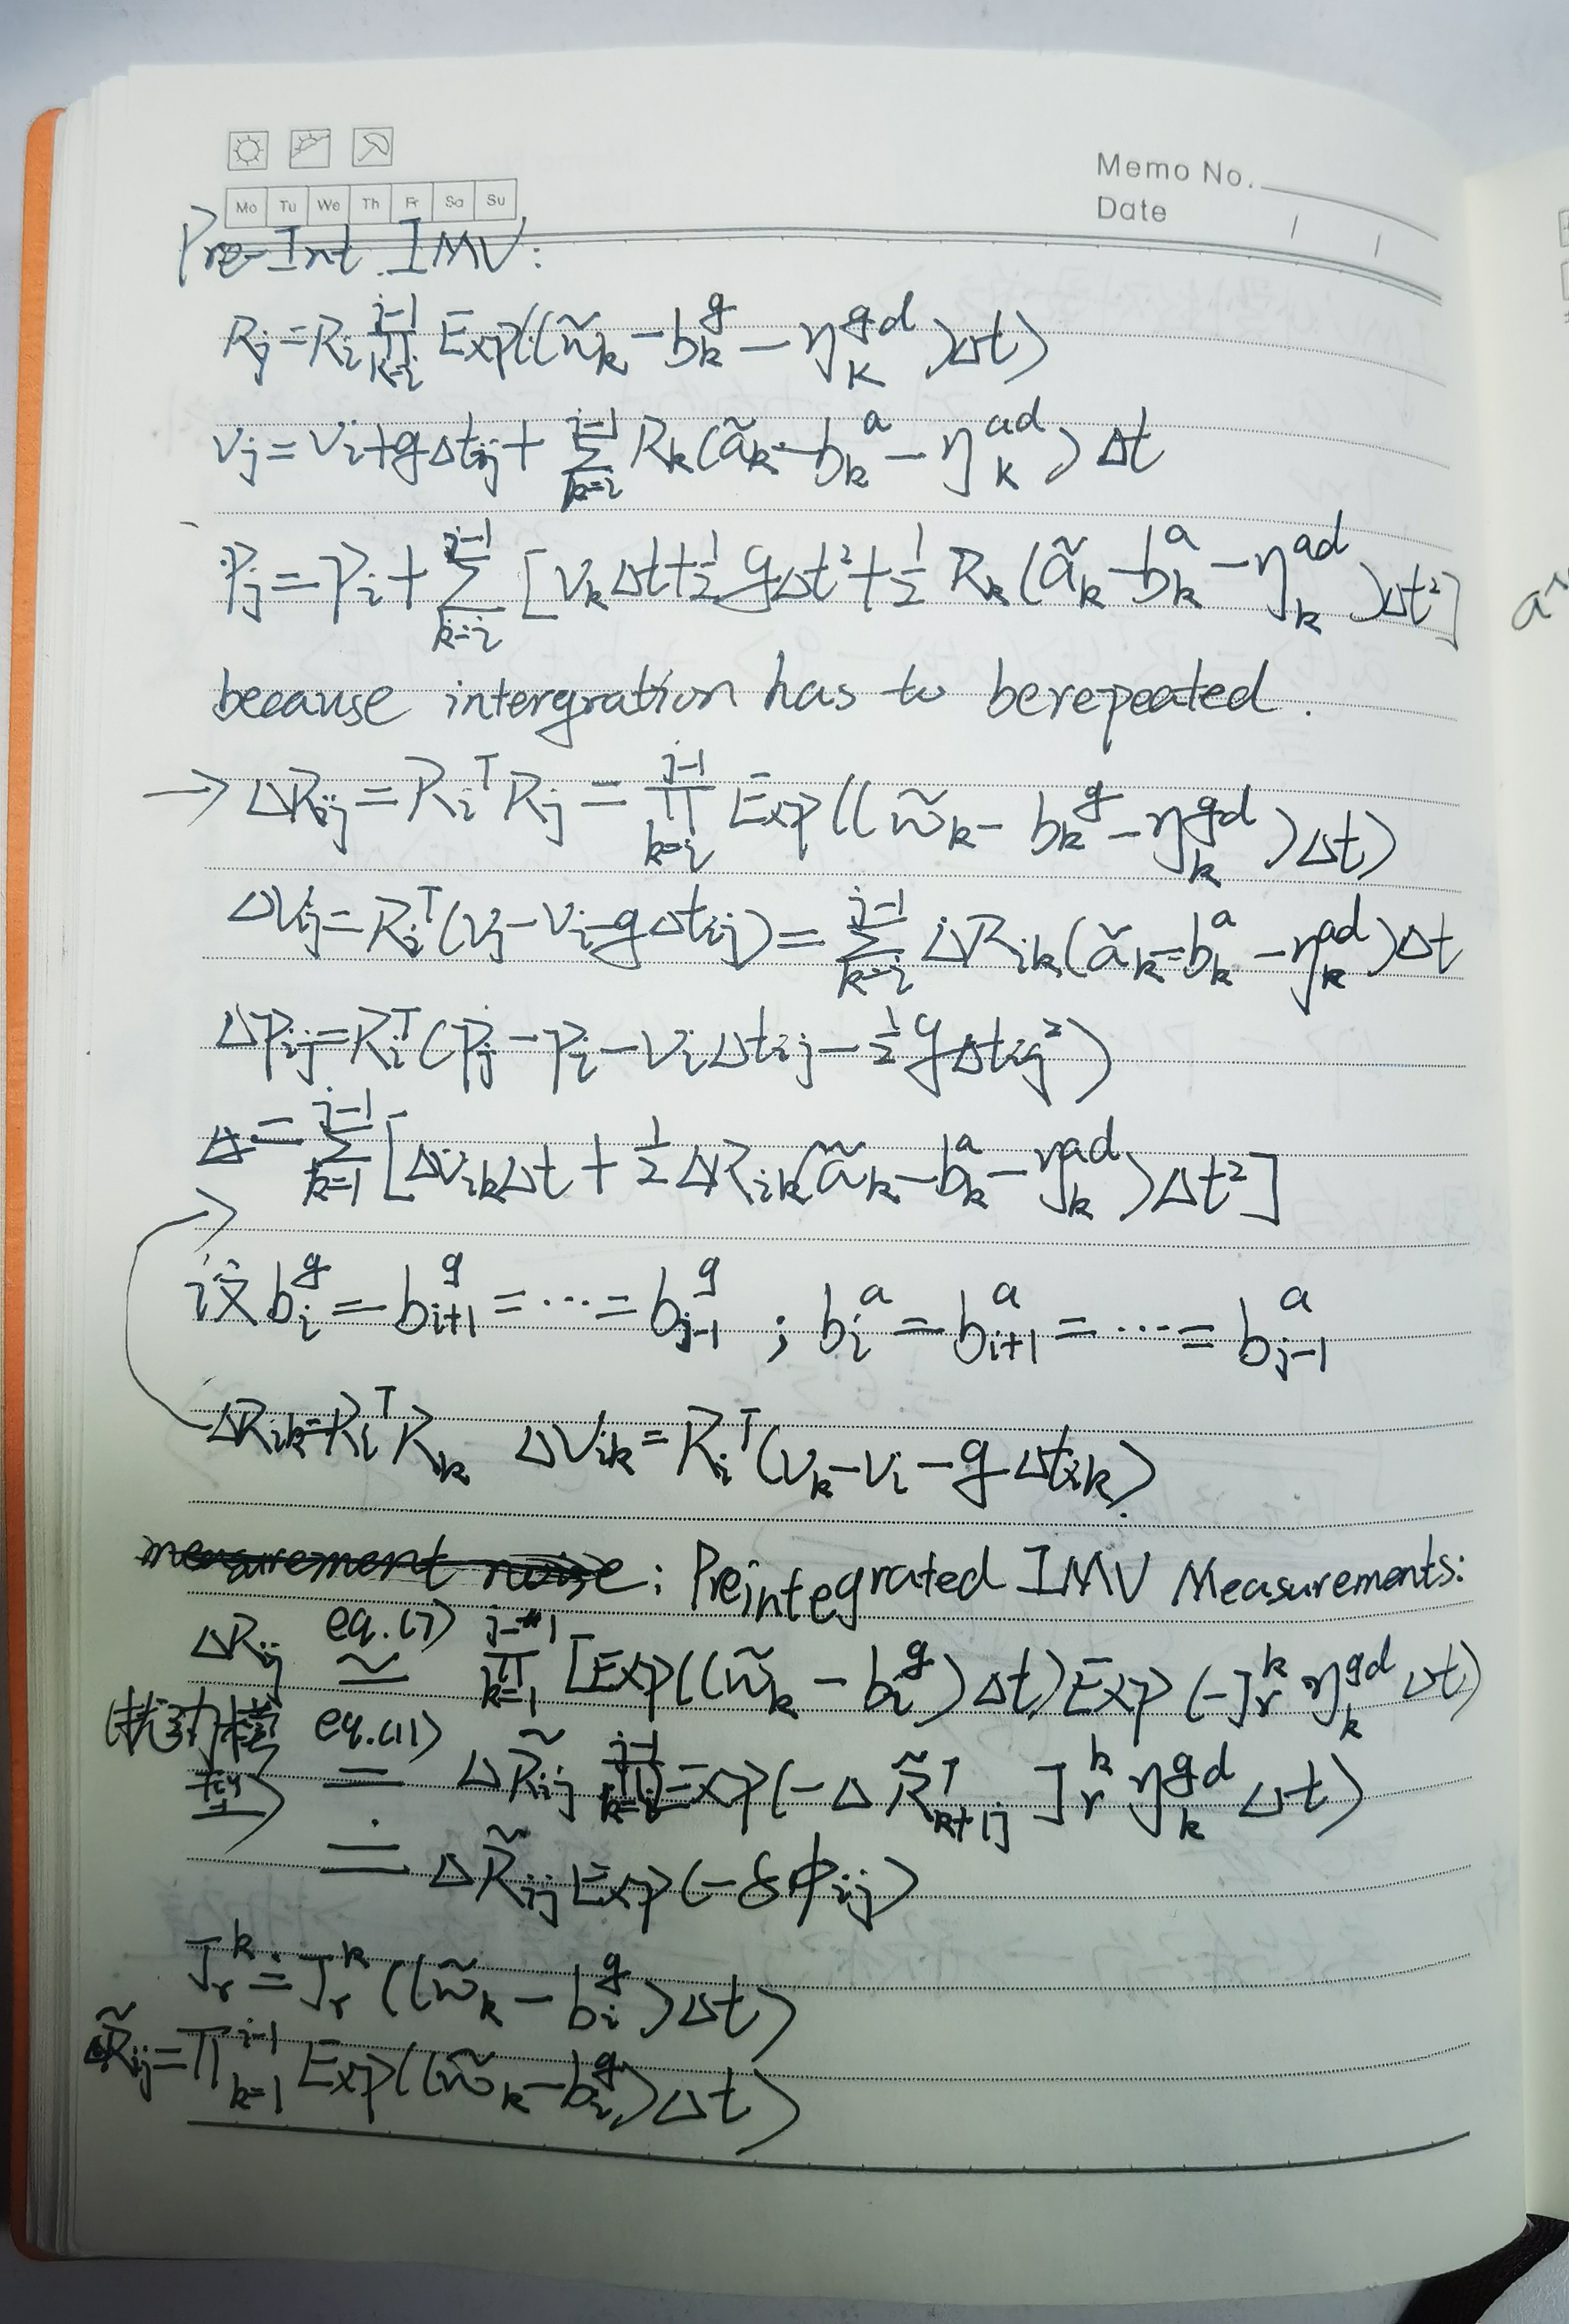 Memo No.
Mo Tu We Th Fr Sa Su
Date / /
Pre-Int IMU:
R_j = R_i ∏_{k=i}^{j-1} Exp((w̃_k - b_k^g - η_k^{gd})Δt)
v_j = v_i + gΔt_{ij} + Σ_{k=i}^{j-1} R_k(ã_k - b_k^a - η_k^{ad})Δt
p_j = p_i + Σ_{k=i}^{j-1} [v_kΔt + ½ gΔt² + ½ R_k(ã_k - b_k^a - η_k^{ad})Δt²]
because intergration has to be repeated.
→ ΔR_{ij} = R_i^T R_j = ∏_{k=i}^{j-1} Exp((w̃_k - b_k^g - η_k^{gd})Δt)
Δv_{ij} = R_i^T(v_j - v_i - gΔt_{ij}) = Σ_{k=i}^{j-1} ΔR_{ik}(ã_k - b_k^a - η_k^{ad})Δt
Δp_{ij} = R_i^T(p_j - p_i - v_iΔt_{ij} - ½ gΔt_{ij}²)
= Σ_{k=1}^{j-1} [Δv_{ik}Δt + ½ ΔR_{ik}(ã_k - b_k^a - η_k^{ad})Δt²]
设 b_i^g = b_{i+1}^g = ⋯ = b_{j-1}^g ; b_i^a = b_{i+1}^a = ⋯ = b_{j-1}^a
ΔR_{ik} = R_i^T R_k Δv_{ik} = R_i^T(v_k - v_i - gΔt_{ik})
measurement noise: Preintegrated IMU Measurements:
ΔR_{ij} eq.(7) ≃ ∏_{k=1}^{j-1} [Exp((w̃_k - b_i^g)Δt)Exp(-J_r^k η_k^{gd}Δt)
(扰动模型) eq.(11) = ΔR̃_{ij} ∏_{k=i}^{j-1} Exp(-ΔR̃_{k+1j}^T J_r^k η_k^{gd}Δt)
≐ ΔR̃_{ij} Exp(-δϕ_{ij})
J_r^k ≐ J_r^k((w̃_k - b_i^g)Δt)
ΔR̃_{ij} = ∏_{k=1}^{j-1} Exp((w̃_k - b_i^g)Δt)